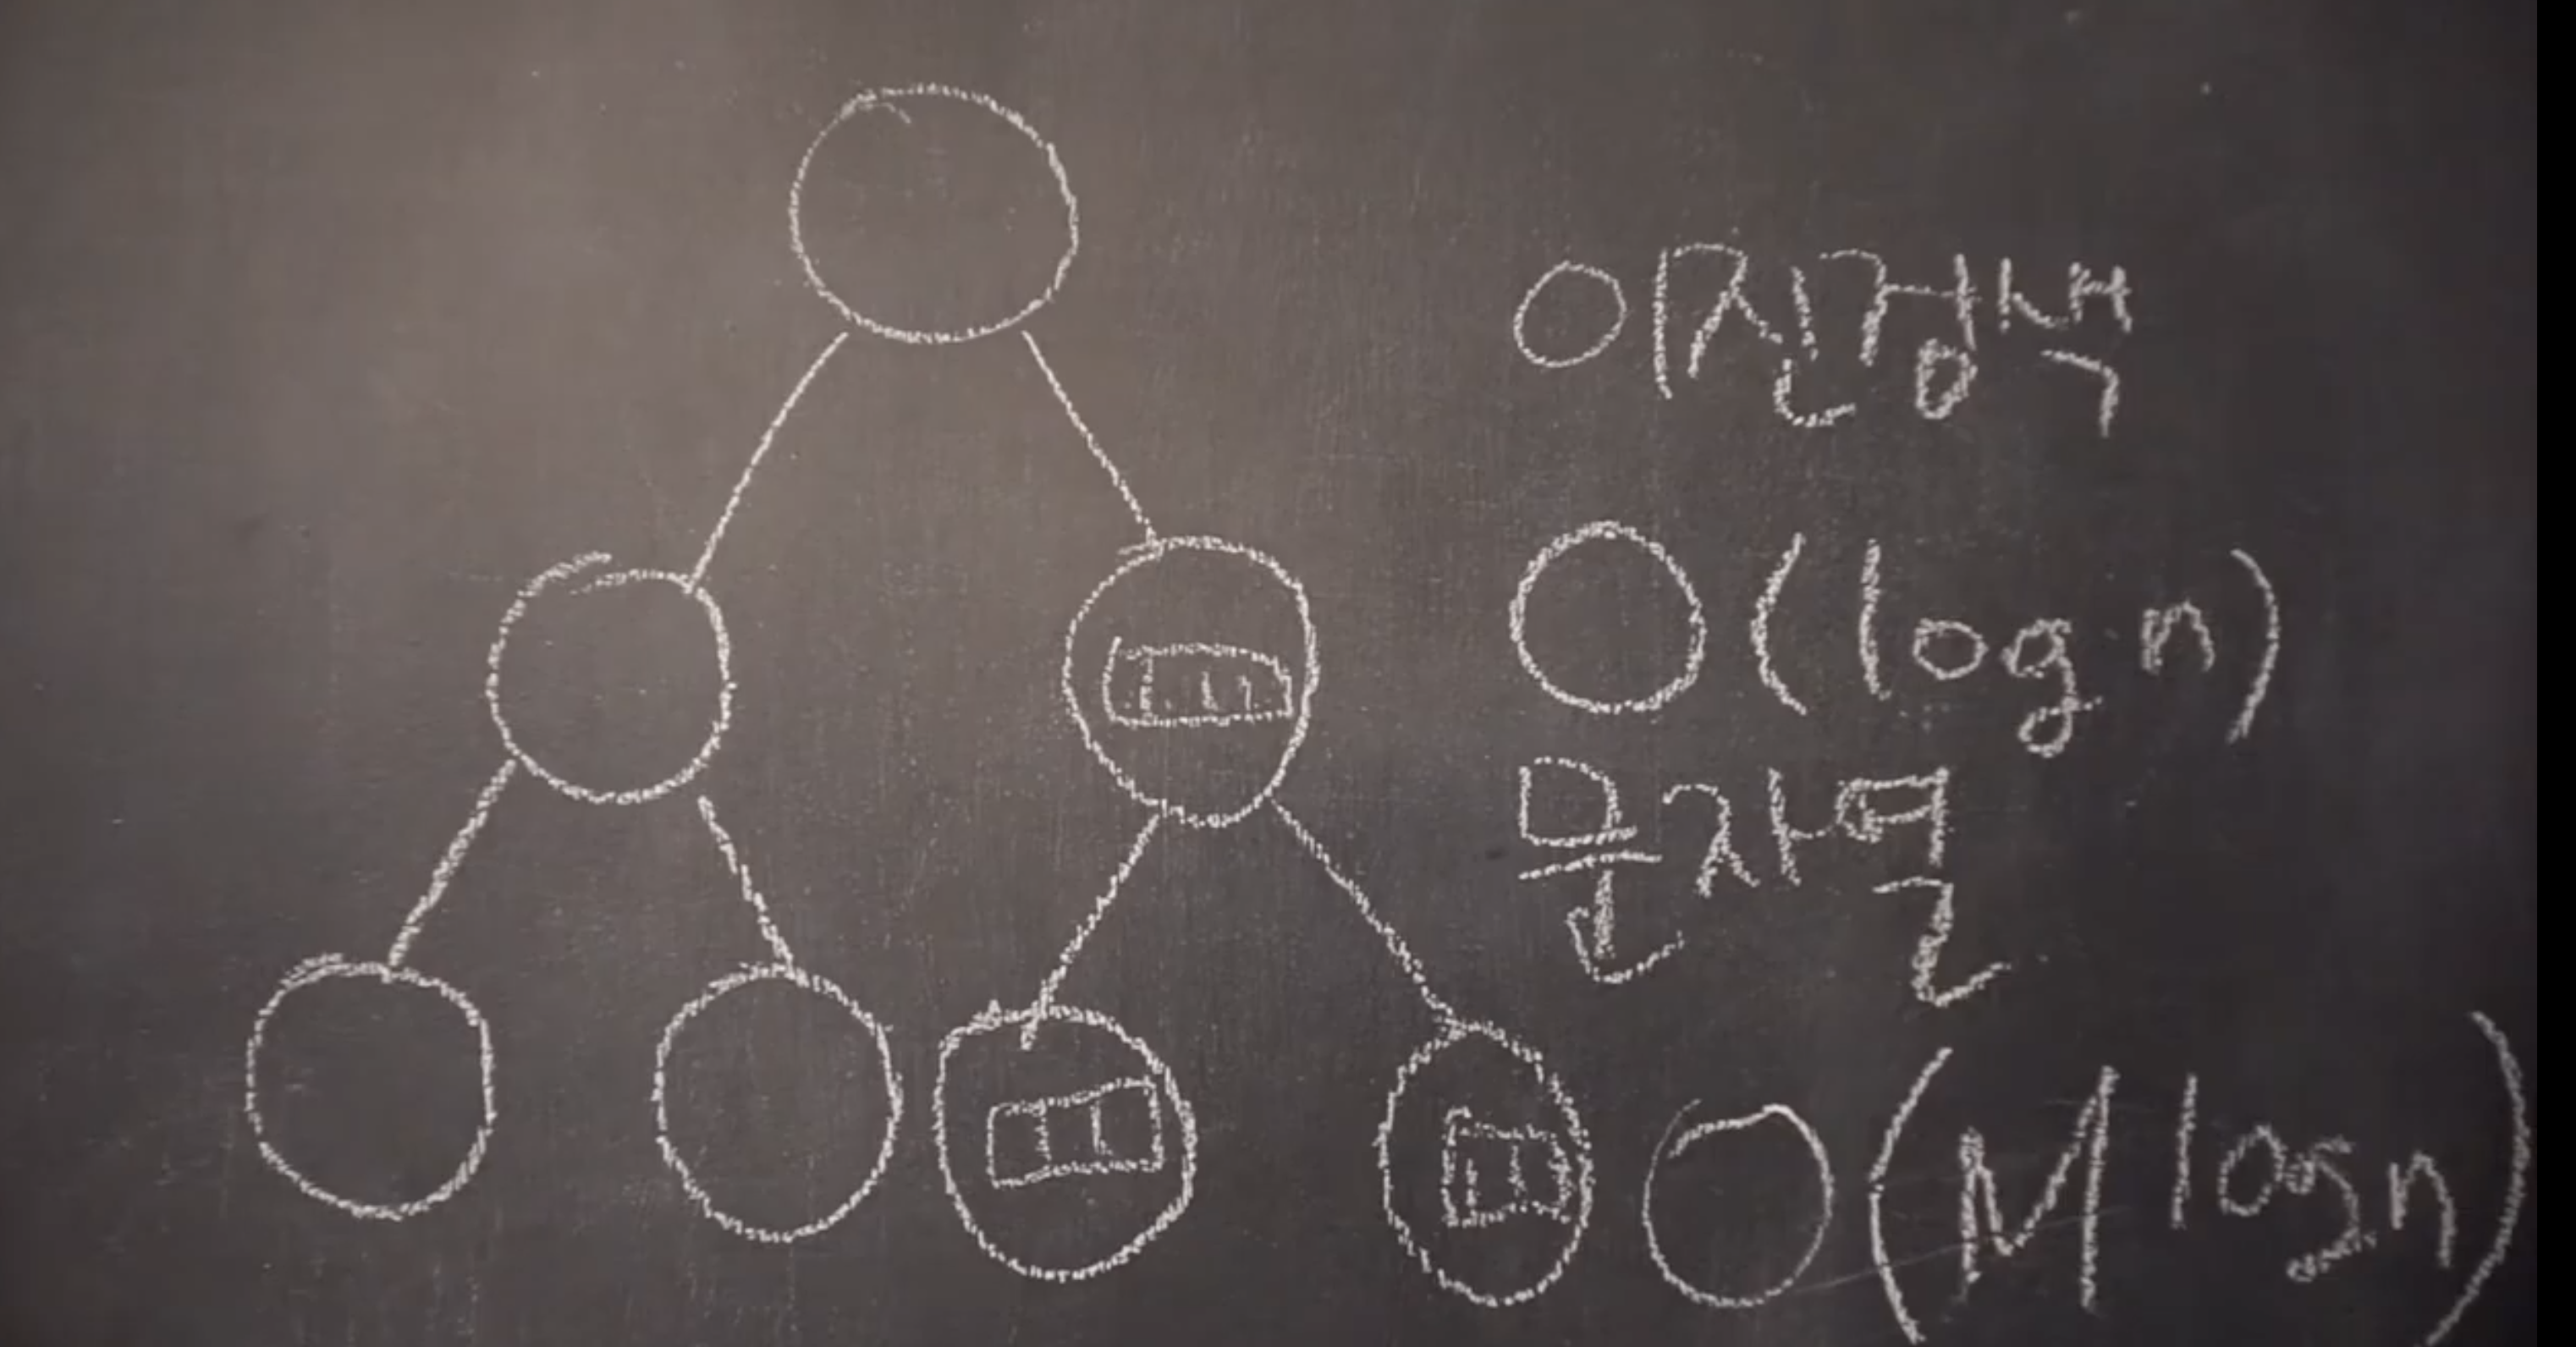 이진검색
O(log n)
문자열
O(M log n)